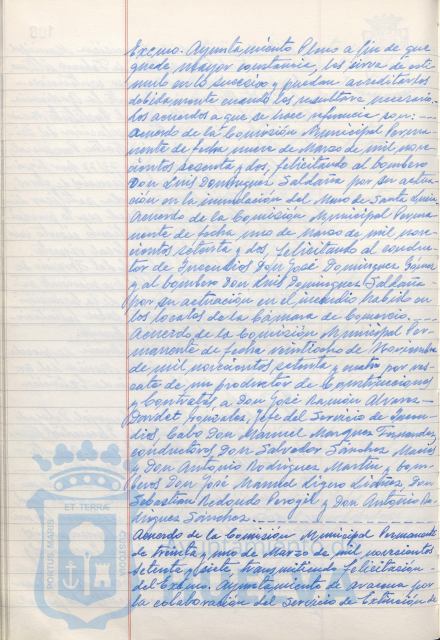 Excmo. Ayuntamiento Pleno a fin de que
quede mayor constancia, les sirva de estí-
mulo en lo sucesivo y puedan acreditarlos
debidamente cuando les resultare necesario.
Los acuerdos a que se hace referencia son:
Acuerdo de la Comisión Municipal Perma-
nente de fecha nueve de Marzo de mil nove-
cientos sesenta y dos, felicitando al bombero
Don Luis Domínguez Saldaña por su actua-
ción en la inundación del Muro de Santa Lucía.
Acuerdo de la Comisión Municipal Perma-
nente de fecha uno de Marzo de mil nove-
cientos setenta y dos felicitando al conduc-
tor de Incendios Don José Domínguez Gómez
y al bombero Don Luis Domínguez Saldaña
por su actuación en el incendio habido en
los locales de la Cámara de Comercio.
Acuerdo de la Comisión Municipal Per-
manente de fecha veintiocho de Noviembre
de mil novecientos setenta y cuatro por res-
cate de un productor de Construcciones
y Contratas a Don José Ramón Alvarez-
Dardet González, Jefe del Servicio de Incen-
dios, Cabo Don Manuel Márquez Fernández
conductores, Don Salvador Sánchez Macías
y Don Antonio Rodríguez Martín y bom-
beros Don José Manuel Ligero Liáñez, Don
Sebastian Redondo Perogil y Don Antonio Ro-
dríguez Sánchez.
Acuerdo de la Comisión Municipal Permanente
de treinta y uno de Marzo de mil novecientos
setenta y siete transmitiendo felicitación
del Excmo. Ayuntamiento de Aracena por
la colaboración del Servicio de Extinción de
PORTUS MARIS
ET TERRAE
CUSTODIA
HUELVA